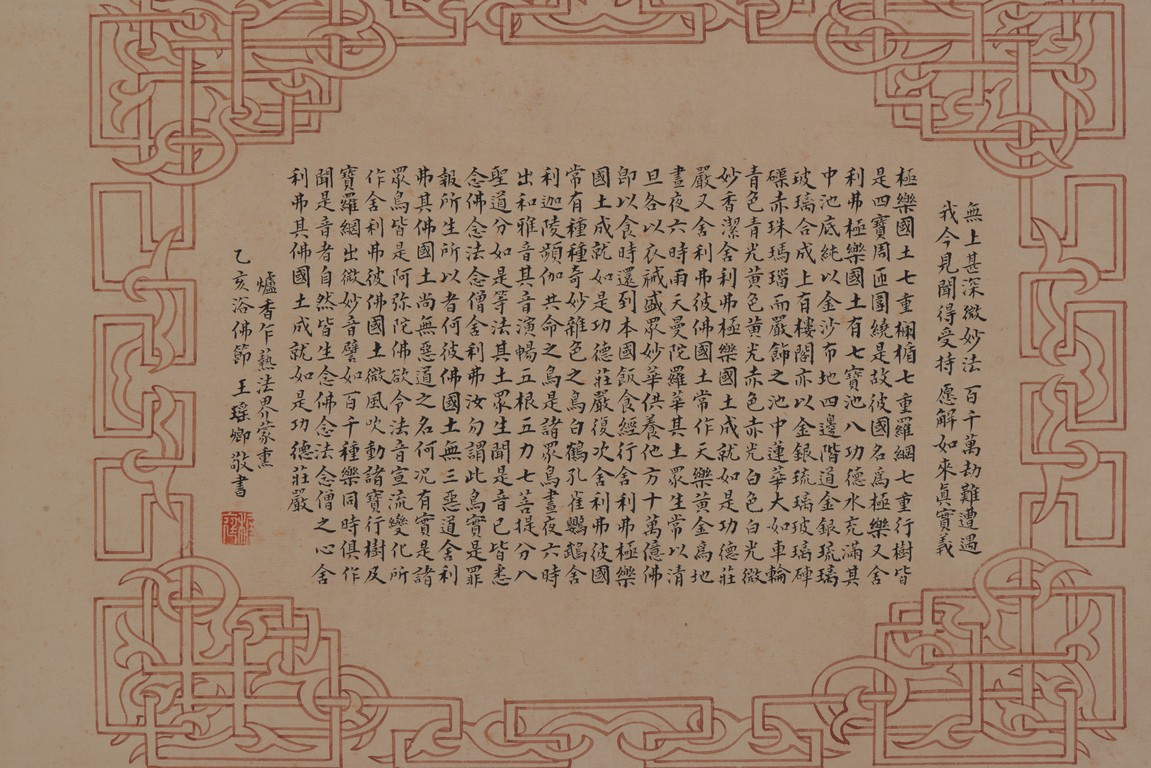 無上甚深微妙法 百千萬劫難遭遇
我今見聞得受持 愿解如來真實義
極樂國土七重欄楯七重羅網七重行樹皆
是四寶周匝圍繞是故彼國名為極樂又舍
利弗極樂國土有七寶池八功德水充滿其
中池底純以金沙布地四邊階道金銀琉璃
玻璃合成上有樓閣亦以金銀琉璃玻璃硨
磲赤珠瑪瑙而嚴飾之池中蓮華大如車輪
青色青光黃色黃光赤色赤光白色白光微
妙香潔舍利弗極樂國土成就如是功德莊
嚴又舍利弗彼佛國土常作天樂黃金為地
晝夜六時雨天曼陀羅華其土眾生常以清
旦各以衣祴盛眾妙華供養他方十萬億佛
即以食時還到本國飯食經行舍利弗極樂
國土成就如是功德莊嚴復次舍利弗彼國
常有種種奇妙雜色之鳥白鶴孔雀鸚鵡舍
利迦陵頻伽共命之鳥是諸眾鳥晝夜六時
出和雅音其音演暢五根五力七菩提分八
聖道分如是等法其土眾生聞是音已皆悉
念佛念法念僧舍利弗汝勿謂此鳥實是罪
報所生所以者何彼佛國土無三惡道舍利
弗其佛國土尚無惡道之名何况有實是諸
眾鳥皆是阿弥陀佛欲令法音宣流變化所
作舍利弗彼佛國土微風吹動諸寶行樹及
寶羅網出微妙音譬如百千種樂同時俱作
聞是音者自然皆生念佛念法念僧之心舍
利弗其佛國土成就如是功德莊嚴
爐香乍爇法界蒙熏
乙亥浴佛節 王瑤卿敬書